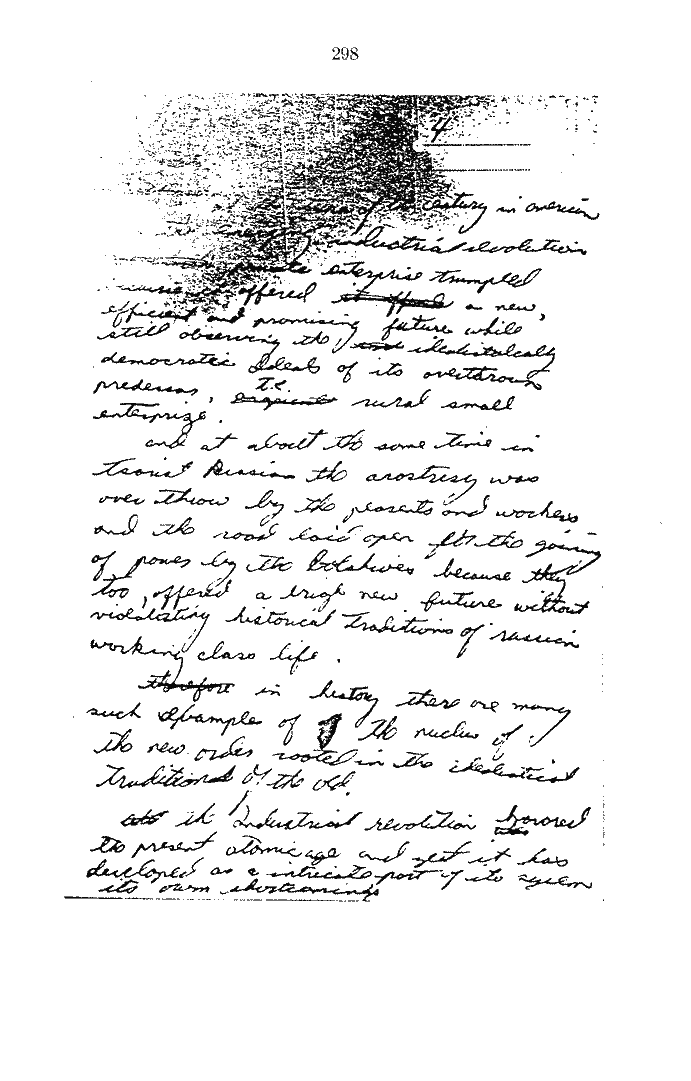 298
4
of the century in american
industrial revolution
private enterprise trumpled
it offered it offered a new,
efficient and promising future while
still observing the and idealistalcally
democratic Ideals of its overthrown
predessor, I.E. rural small
enterprize.
and at about the same time in
tsarist Russian the arostresy was
over throw by the pesents and workers
and the road laid open for the gaining
of power by the bolshives because they
too, offered a brigh new future without
violabting historical traditions of russian
working class life.
therefore in history there are many
such examples of the nucleu of
the new order rooted in the idealistical
traditional of the old.
the Industrial revolution
the present atomic age and yet it has
developed as a intricate part of its system
its own shortcomings